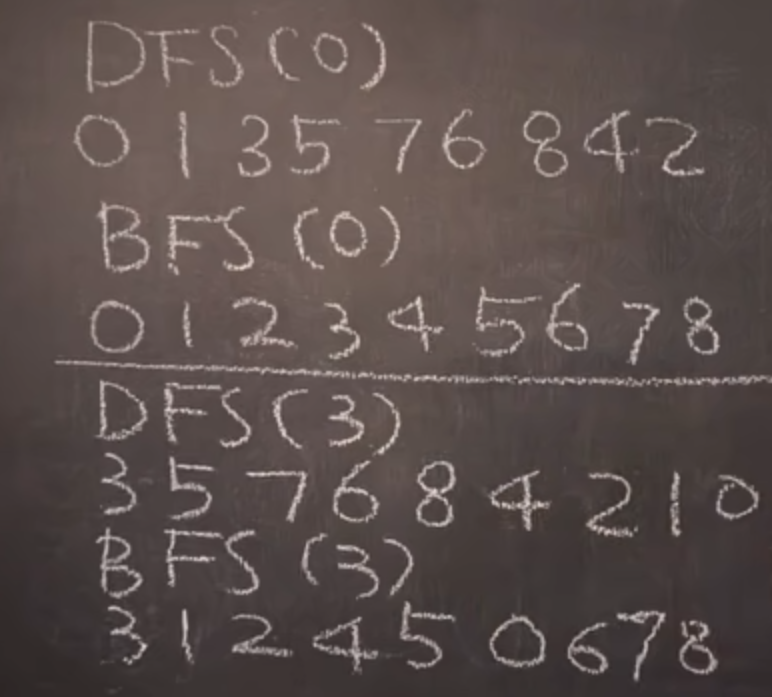 DFS(0)
0 1 3 5 7 6 8 4 2
BFS (0)
0 1 2 3 4 5 6 7 8
DFS(3)
3 5 7 6 8 4 2 1 0
BFS (3)
3 1 2 4 5 0 6 7 8